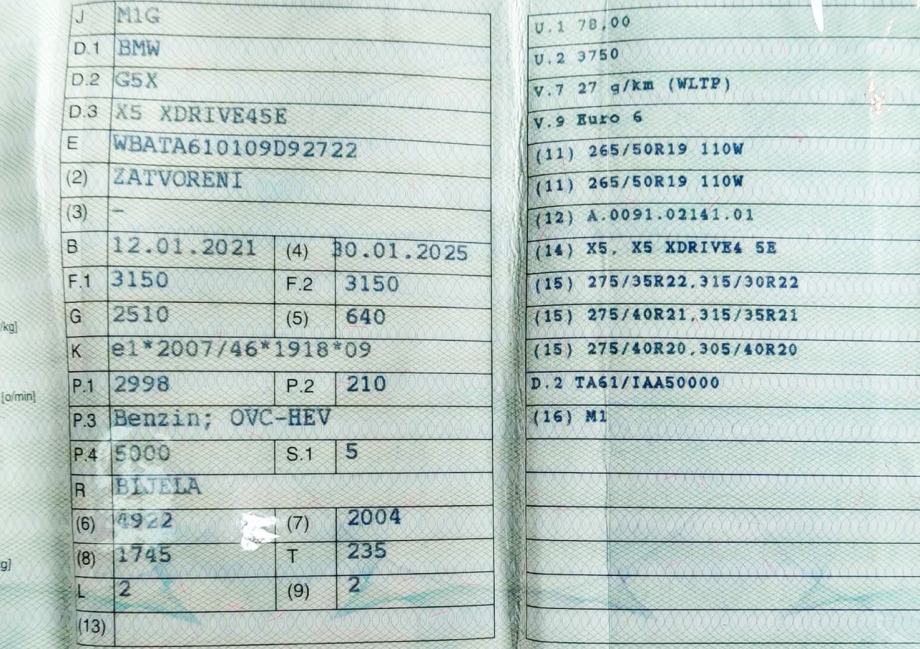 J M1G
D.1 BMW
D.2 G5X
D.3 X5 XDRIVE45E
E WBATA610109D92722
(2) ZATVORENI
(3) –
B 12.01.2021 (4) 30.01.2025
F.1 3150 F.2 3150
G 2510 (5) 640
K e1*2007/46*1918*09
P.1 2998 P.2 210
P.3 Benzin; OVC-HEV
P.4 5000 S.1 5
R BIJELA
(6) 4922 (7) 2004
(8) 1745 T 235
L 2 (9) 2
(13)
/kg]
[o/min]
g]
U.1 78,00
U.2 3750
V.7 27 g/km (WLTP)
V.9 Euro 6
(11) 265/50R19 110W
(11) 265/50R19 110W
(12) A.0091.02141.01
(14) X5, X5 XDRIVE4 5E
(15) 275/35R22,315/30R22
(15) 275/40R21,315/35R21
(15) 275/40R20,305/40R20
D.2 TA61/IAA50000
(16) M1